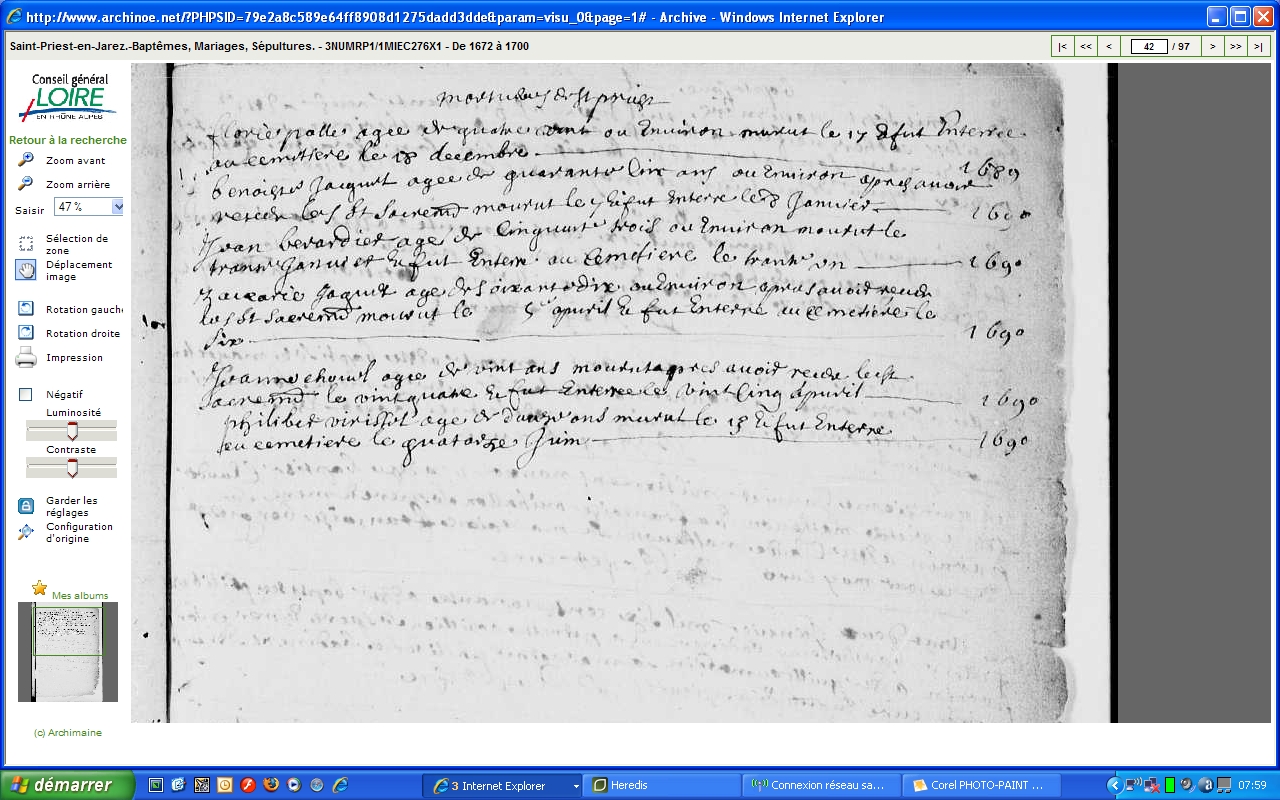 http://www.archinoe.net/?PHPSID=79e2a8c589e64ff8908d1275dadd3dde&param=visu_0&page=1# - Archive - Windows Internet Explorer
Saint-Priest-en-Jarez.-Baptêmes, Mariages, Sépultures. - 3NUMRP1/1MIEC276X1 - De 1672 à 1700
|< << < 42 / 97 > >> >|
Conseil général
LOIRE
EN RHÔNE ALPES
Retour à la recherche
Zoom avant
Zoom arrière
Saisir 47 %
Sélection de
zone
Déplacement
image
Rotation gauche
Rotation droite
Impression
Négatif
Luminosité
Contraste
Garder les
réglages
Configuration
d'origine
Mes albums
(c) Archimaine
florie palle agee de quatre vint ou Environ murut le 17 & fut Enterree
au cemetiere le 18 decembre 1689
benoiste Jacquet agee de quarante ans ou Environ apres avoir
receu les st Sacremt mourut le & fut Enterre le 8 Janvier 1690
Jean berardier age de cinquante trois ou Environ mourut le
trante Janvier & fut Enterre au cemetiere le trante un 1690
zacarie Jaquet age de soixante dix ou Environ apres avoir receu
les st Sacremt mourut le 5 apvril & fut Enterre au cemetiere le
six 1690
Jeanne agee de vint ans mourut apres avoir receu le st
Sacremt le vint quatre & fut Enterree le vint cinq apvril 1690
philibert age de ans murut le 13 & fut Enterre
au cemetiere le quatorze Juin 1690
démarrer
3 Internet Explorer
Heredis
Connexion réseau sa...
Corel PHOTO-PAINT ...
07:59